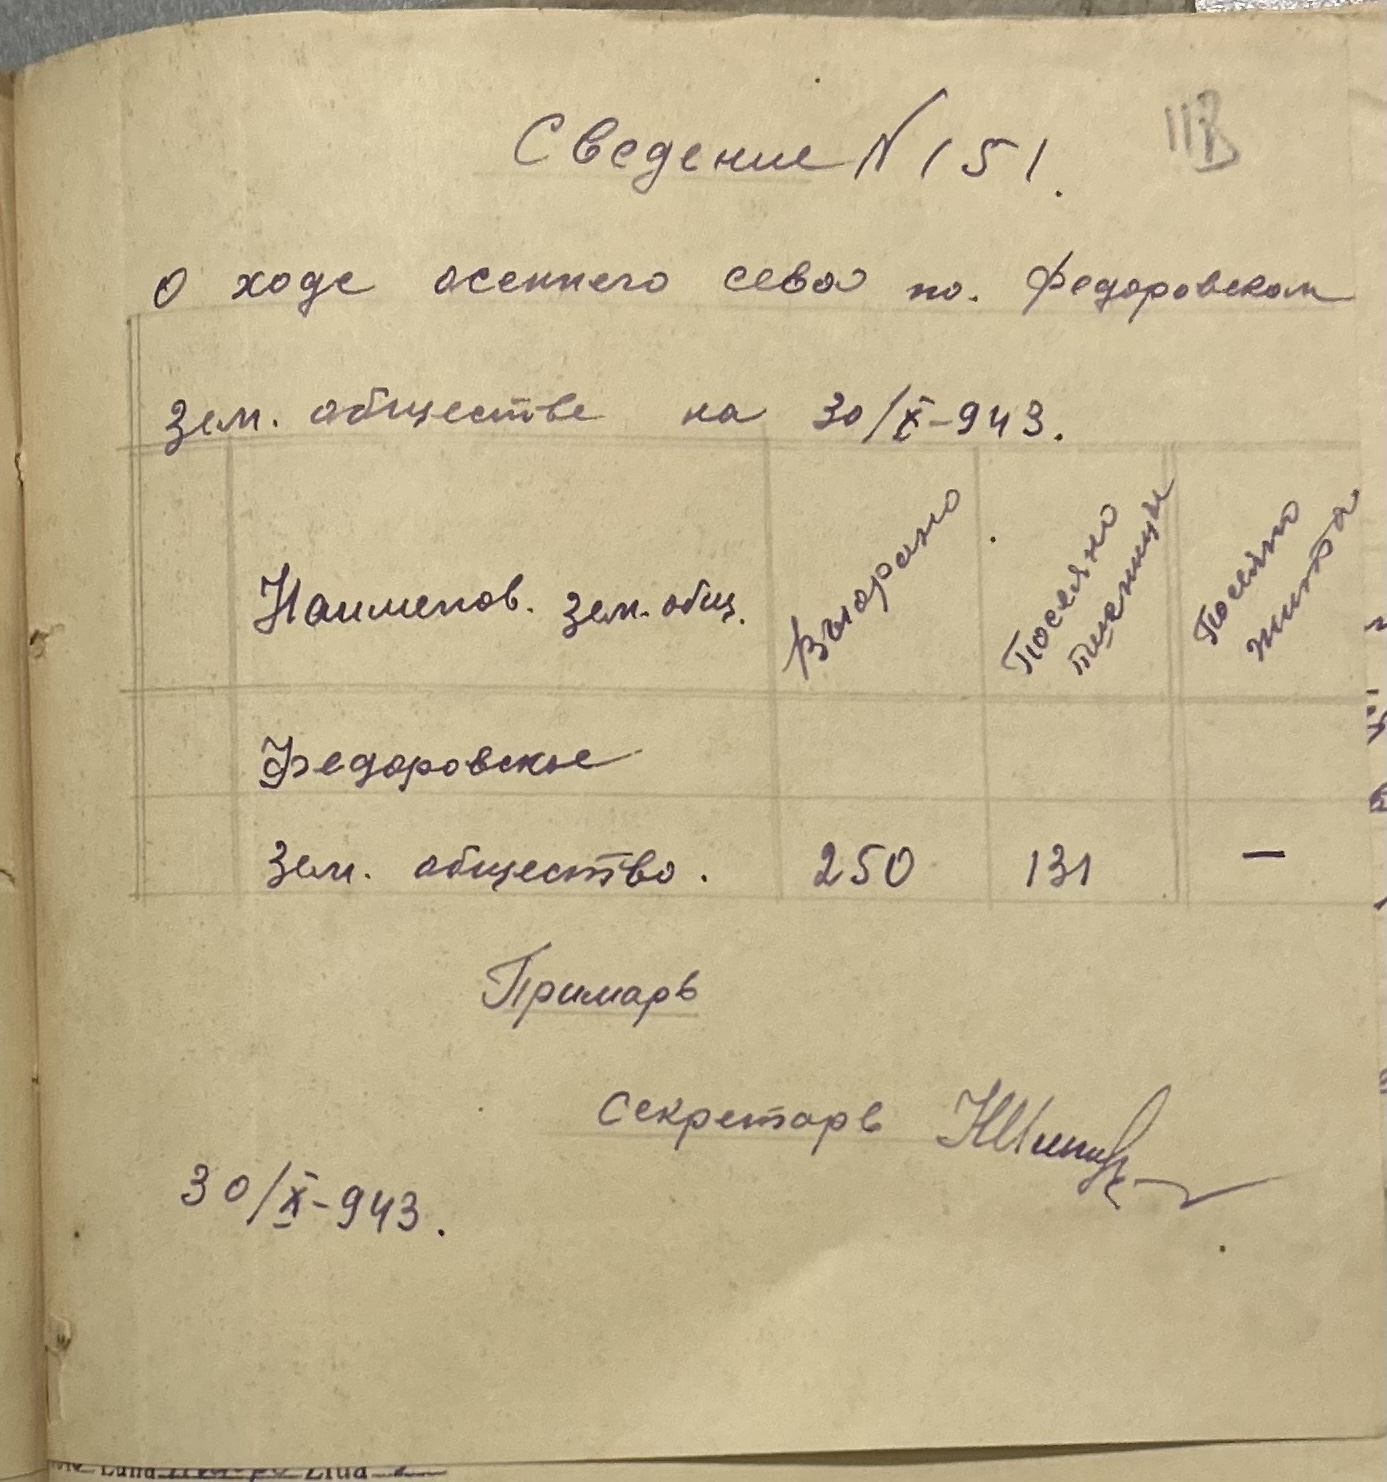 Сведение N 151.
о ходе осеннего сева по. Федоровском
зем. обществе на 30/X-943.
Наименов. зем. общ.
Взорано
Посеяно
пшеницы
Посеяно
жита
Федоровское
Зем. общество. 250 131 —
Примарь
Секретарь
30/X-943.